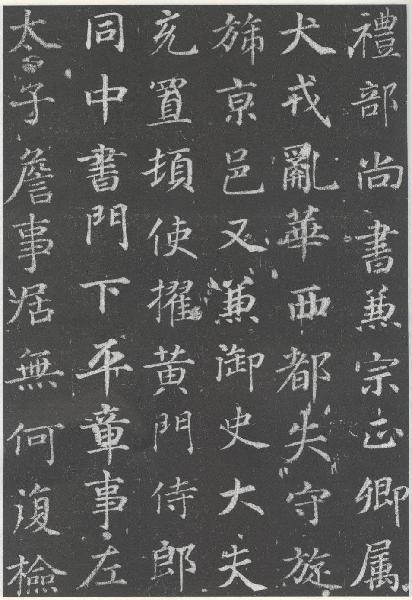 禮部尚書兼宗正卿属
犬戎亂華西都失守旋
旆亰邑又兼御史大夫
充置頓使擢黄門侍郎
同中書門下平章事左
太子詹事居無何復檢